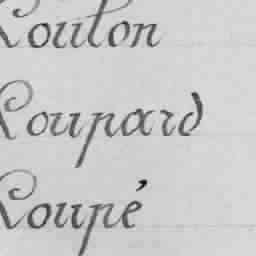 Louton
Loupard
Loupé